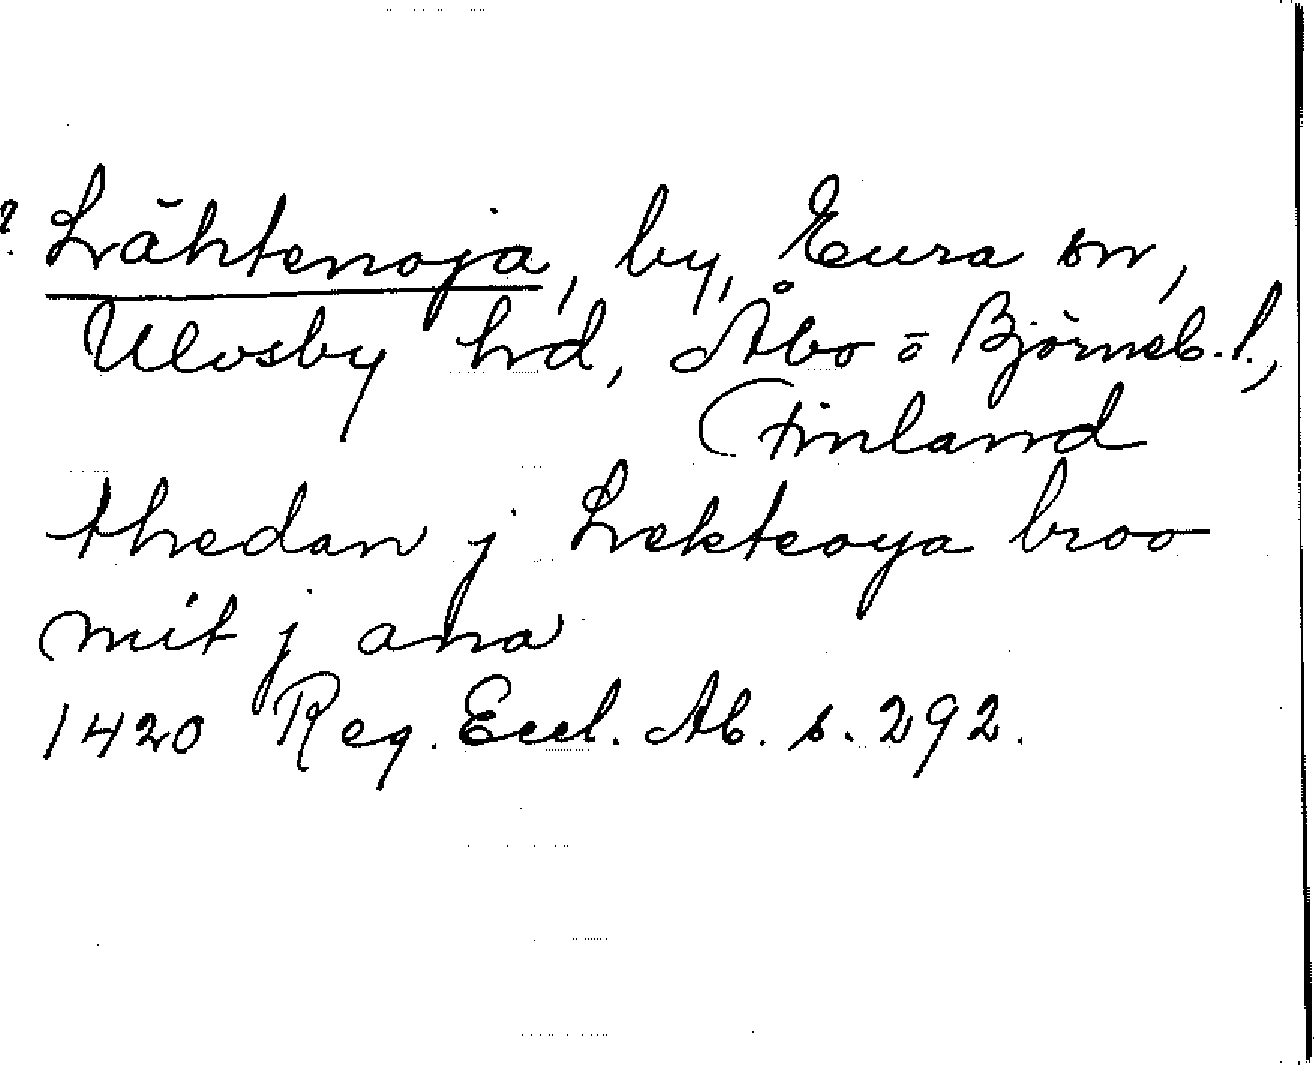 ? Lähtenoja, by, Eura sn,
Ulvsby hd, Åbo o Björneb. l.,
Finland
thædan j Lekteoya broo
mit j ana
1420 Reg. Eccl. Ab. s. 292.